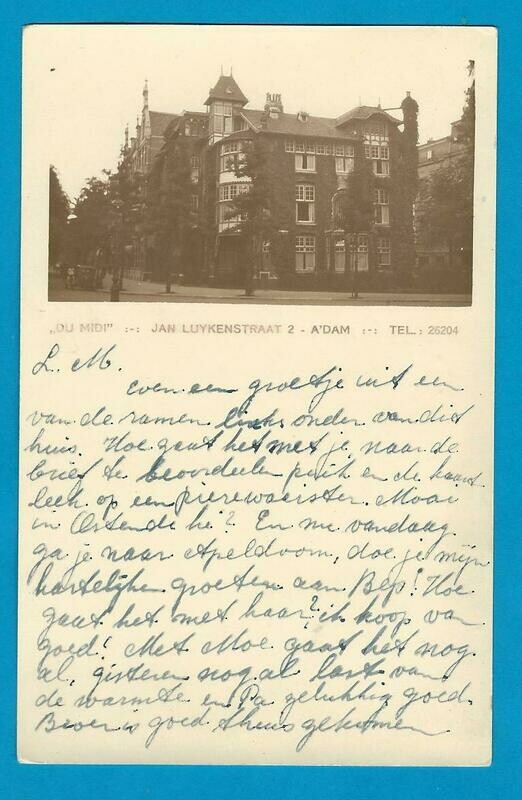 „DU MIDI” :-: JAN LUYKENSTRAAT 2 - A'DAM :-: TEL.: 26204
L. M.
even een groetje uit een
van de ramen links onder van dit
huis. Hoe gaat het met je, naar de
brief te beoordeelen puik en de kaart
leek op een pierewaaister. Mooi
in Ostende hè? En nu vandaag
ga je naar Apeldoorn, doe je mijn
hartelijke groeten aan Bep! Hoe
gaat het met haar? ik hoop van
goed! Met Moe gaat het nog
al, gisteren nog al last van
de warmte en Pa gelukkig goed.
Broer is goed thuis gekomen